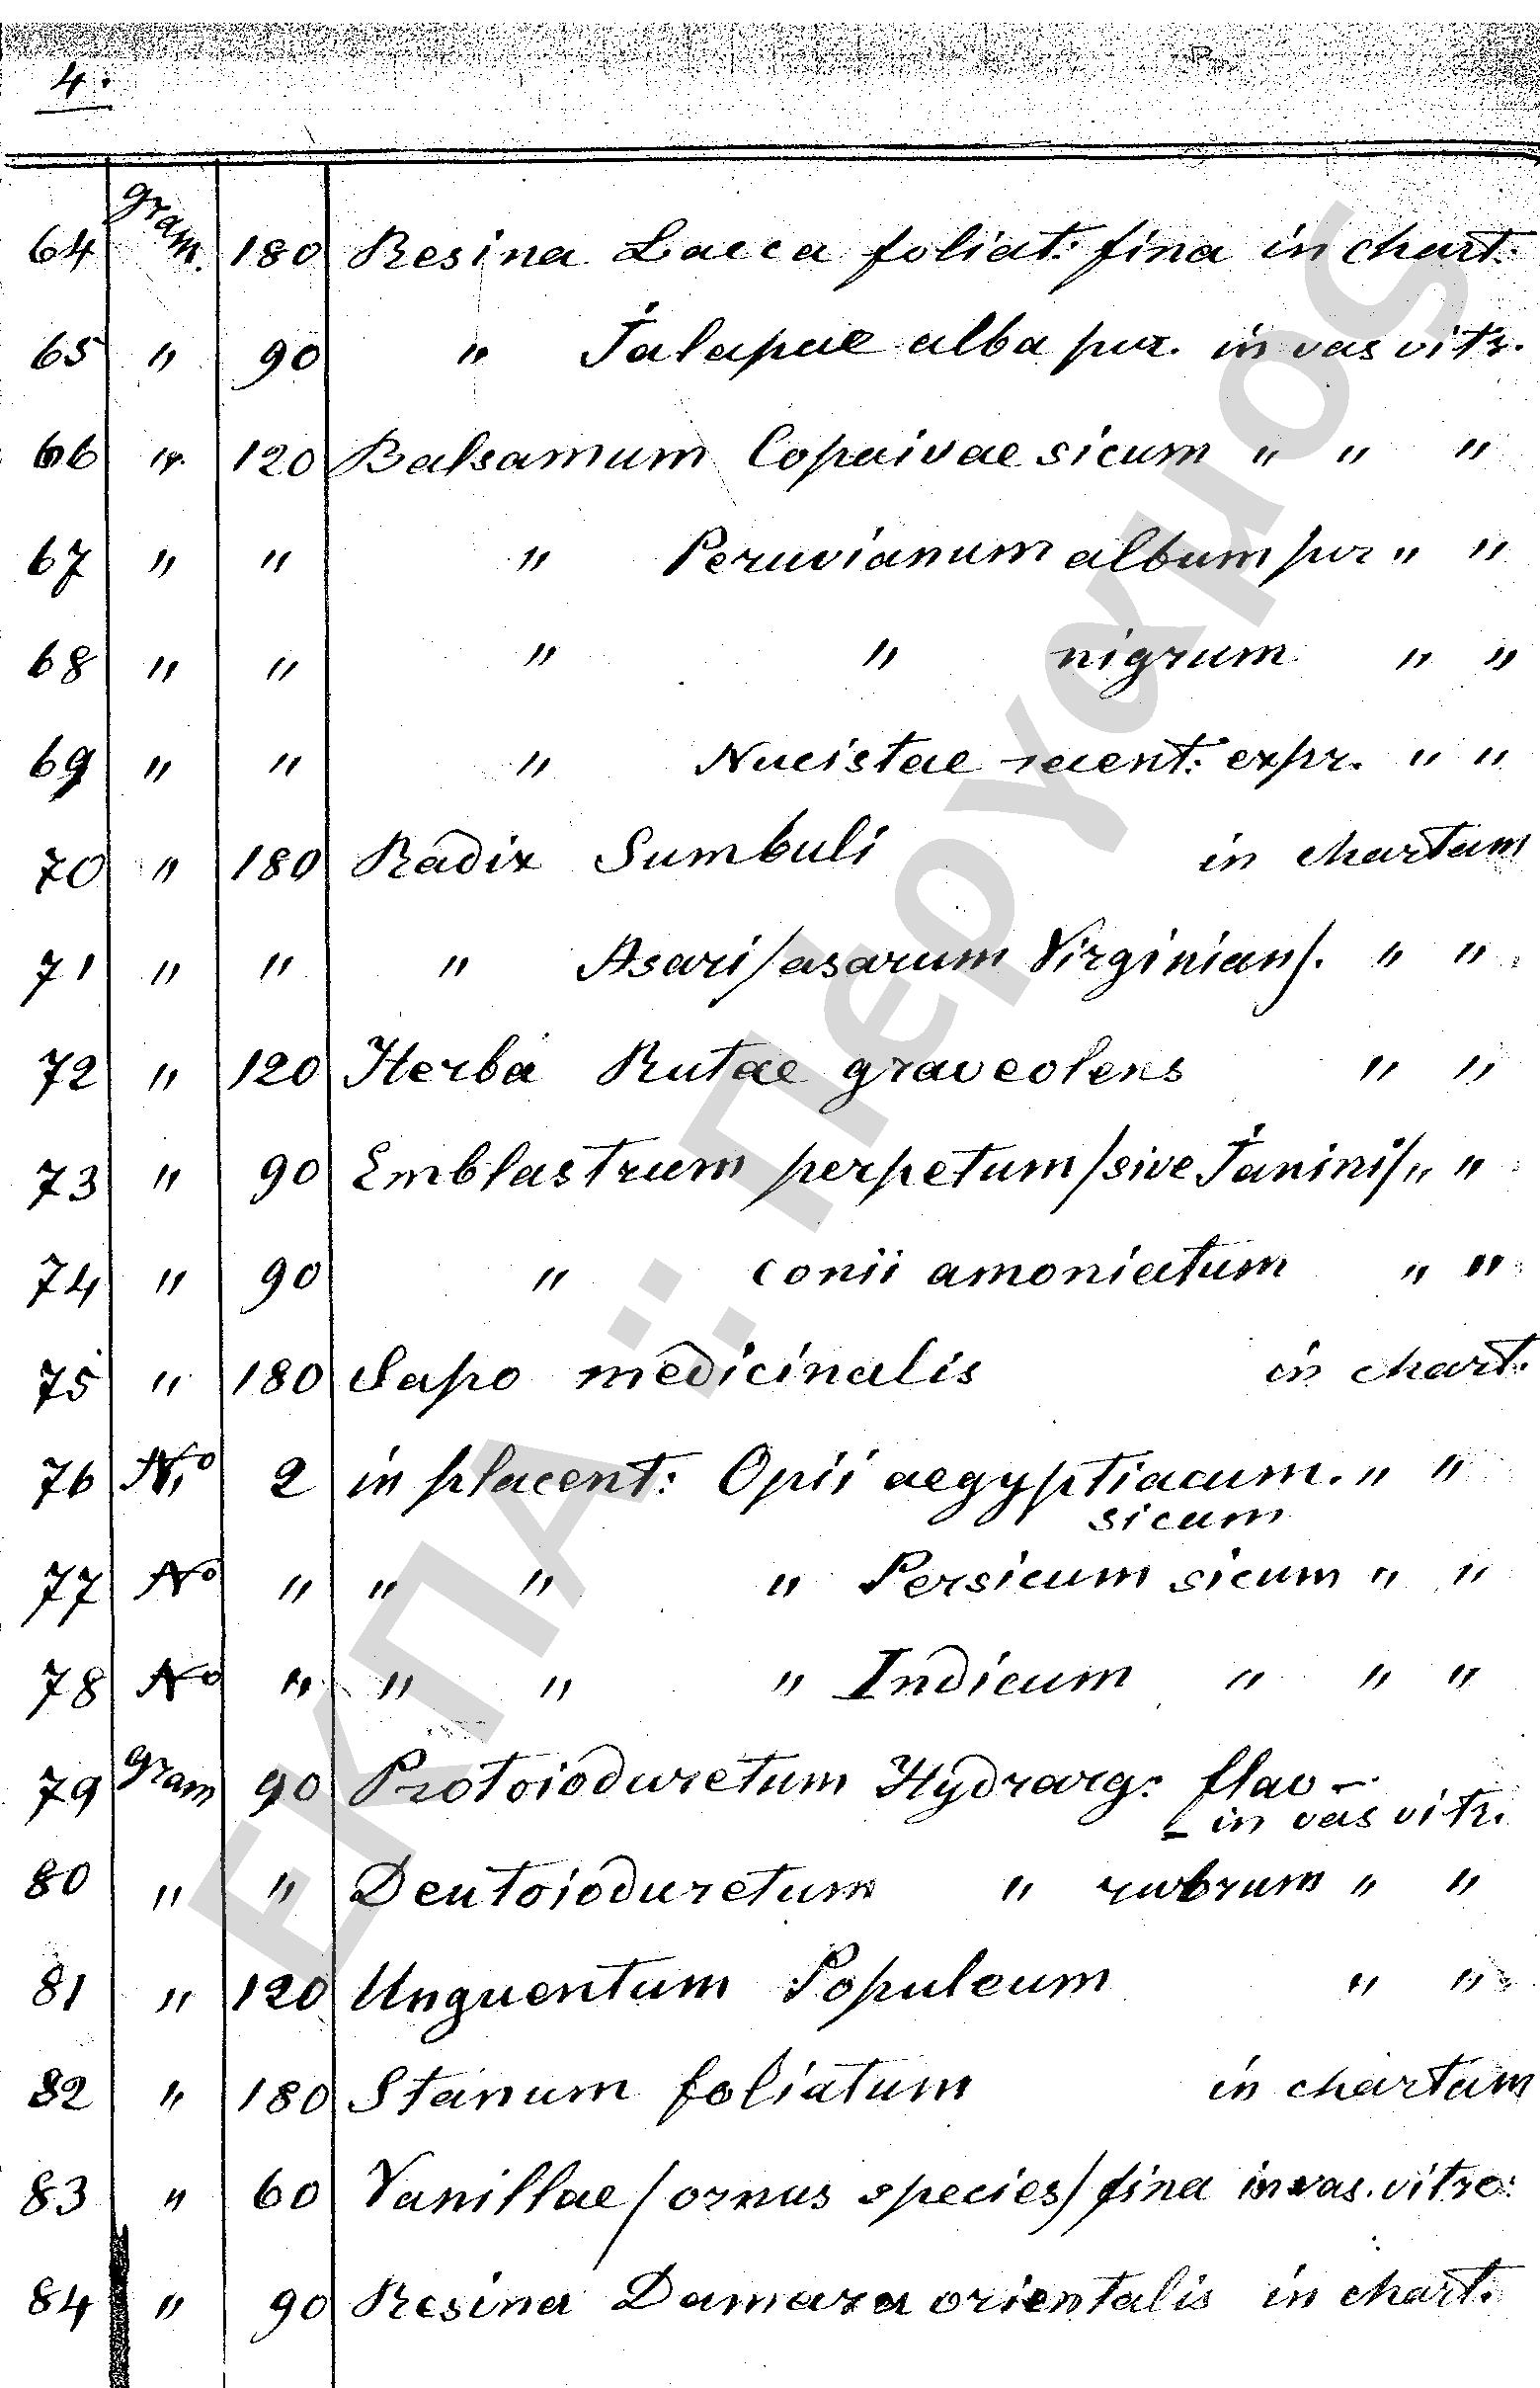 4.
64 gram. 180 Resina Lacca foliat: fina in chart:
65 " 90 " Jalapae alba pur. in vas vitr.
66 " 120 Balsamum Copaivae sicum " " "
67 " " " Peruvianum album pur " "
68 " " " " nigrum " "
69 " " " Nucistae recent: expr. " "
70 " 180 Radix Sumbuli in chartam
71 " " " Asari/asarum Virginian/. " "
72 " 120 Herba Rutae graveolens " "
73 " 90 Emblastrum perpetum/sive Janini/ " "
74 " 90 " conii amoniatum " "
75 " 180 Sapo medicinalis in chart:
76 No 2 in placent: Opii aegyptiacum. " "
sicum
77 No " " " " Persicum sicum " "
78 No " " " " Indicum " " "
79 gram 90 Protoioduretum Hydrarg: flav -
- in vas vitr.
80 " " Deutoioduretum " rubrum " "
81 " 120 Unguentum Populeum " "
82 " 180 Stanum foliatum in chartam
83 " 60 Vanillae/ornus species/fina in vas. vitro:
84 " 90 Resina Damara orientalis in chart.
ΕΚΠΑ :: Πέργαμος